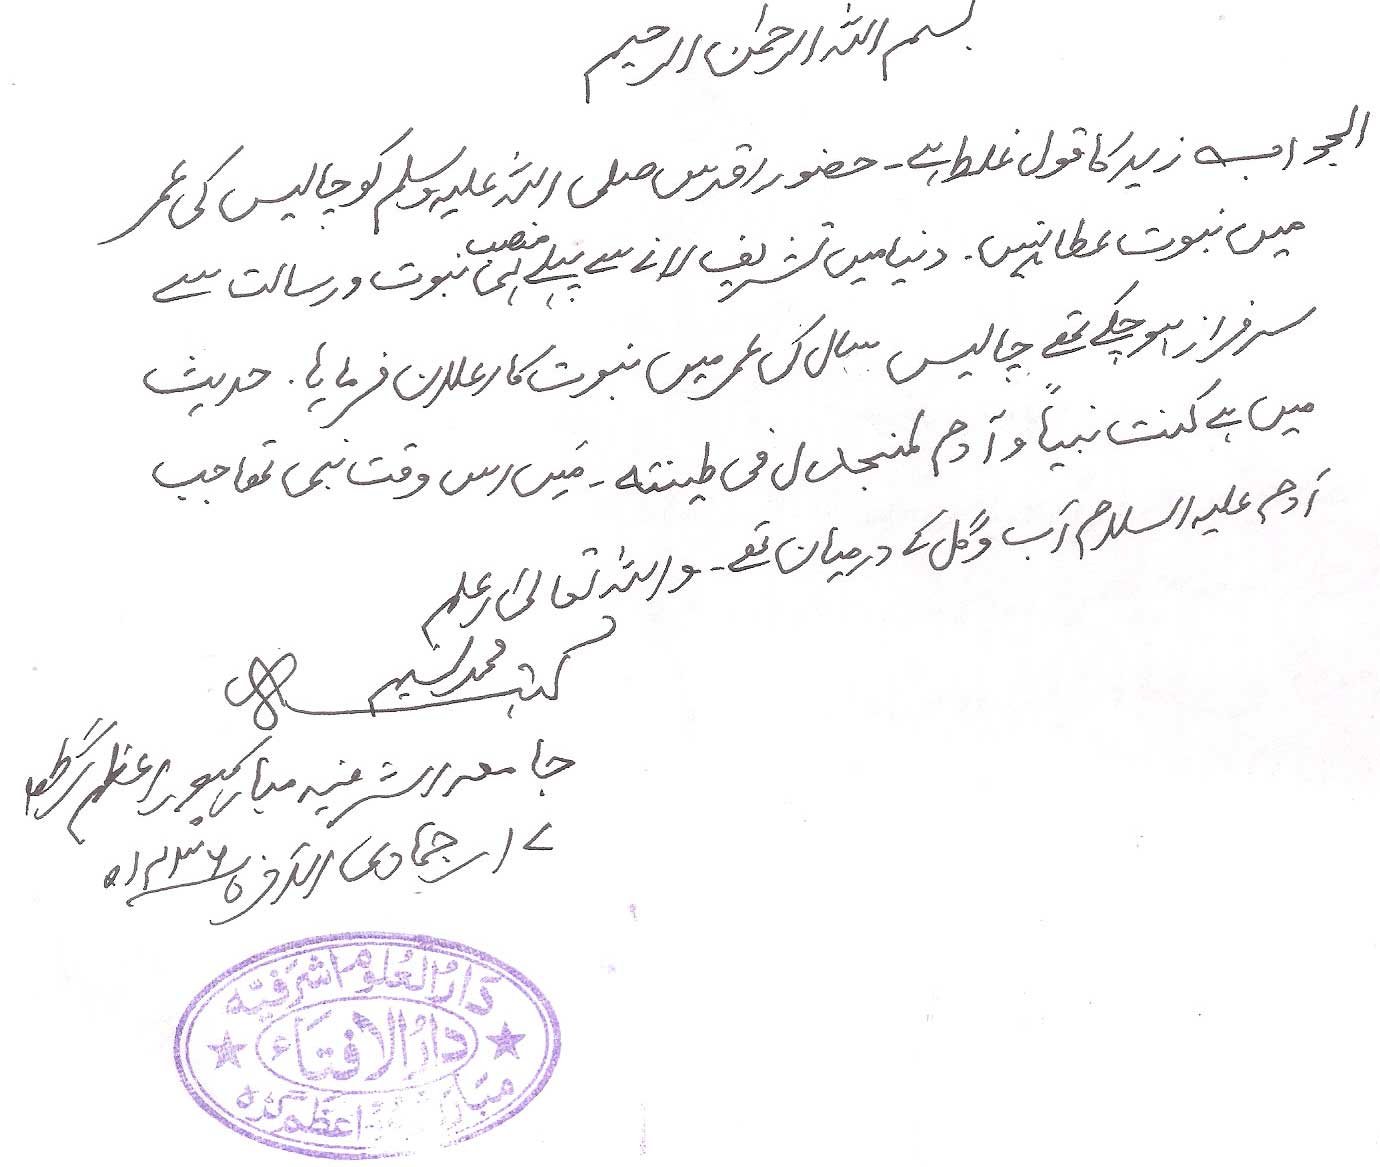 بسم اللہ الرحمٰن الرحیم
الجواب زید کا قول غلط ہے۔ حضور اقدس صلی اللہ علیہ وسلم کو چالیس کی عمر
میں نبوت عطا نہیں۔ دنیا میں تشریف لانے سے پہلے ہی منصب نبوت و رسالت سے
سرفراز ہو چکے تھے چالیس سال کی عمر میں نبوت کا اعلان فرمایا۔ حدیث
میں ہے کنت نبیاً و آدم لمنجدل فی طینتہ۔ میں اس وقت نبی تھا جب
آدم علیہ السلام آب و گل کے درمیان تھے۔ واللہ تعالیٰ اعلم
کتبہ محمد نسیم
جامعہ اشرفیہ مبارکپور اعظم گڑھ
۷ ار جمادی الآخرہ ۱۴۳۶ھ
دَارُ العُلوم اشرَفیّہ
دَارُ الافتَاء
مبَار اعظم گڑہ